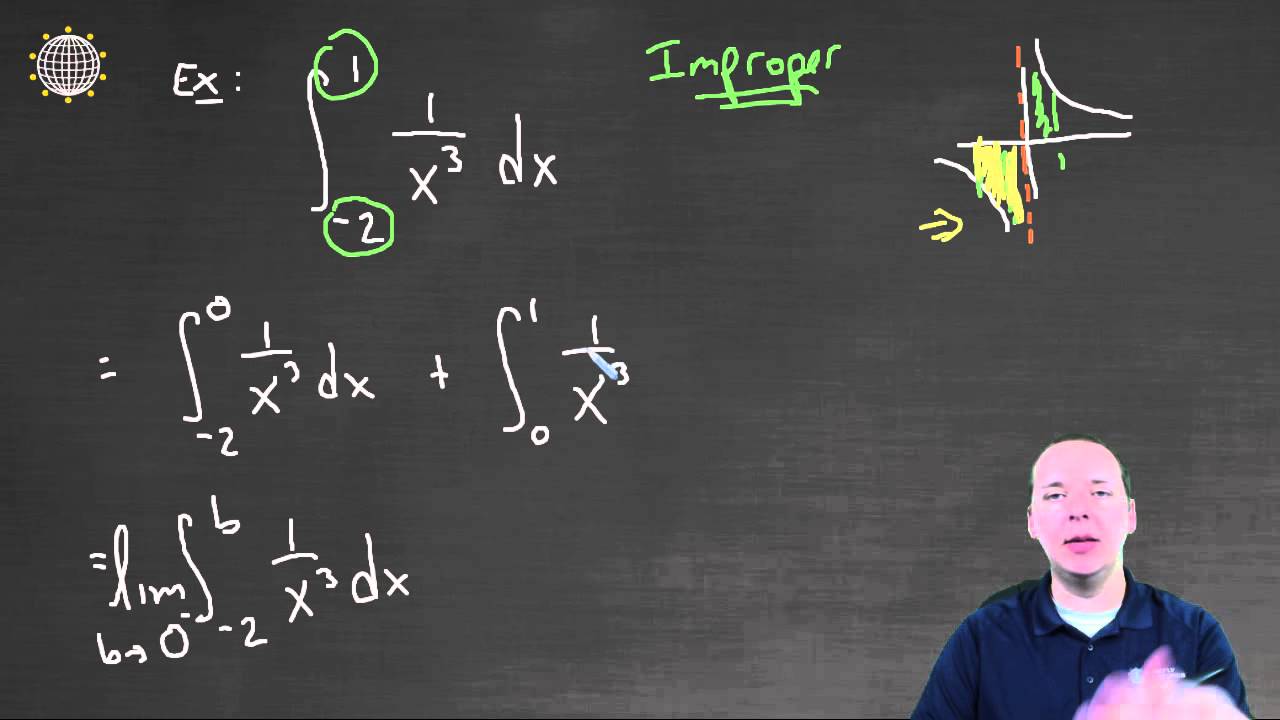 Ex: ∫_{-2}^{1} 1/x³ dx
Improper
1
= ∫_{-2}^{0} 1/x³ dx + ∫_{0}^{1} 1/x³
= lim_{b→0⁻} ∫_{-2}^{b} 1/x³ dx